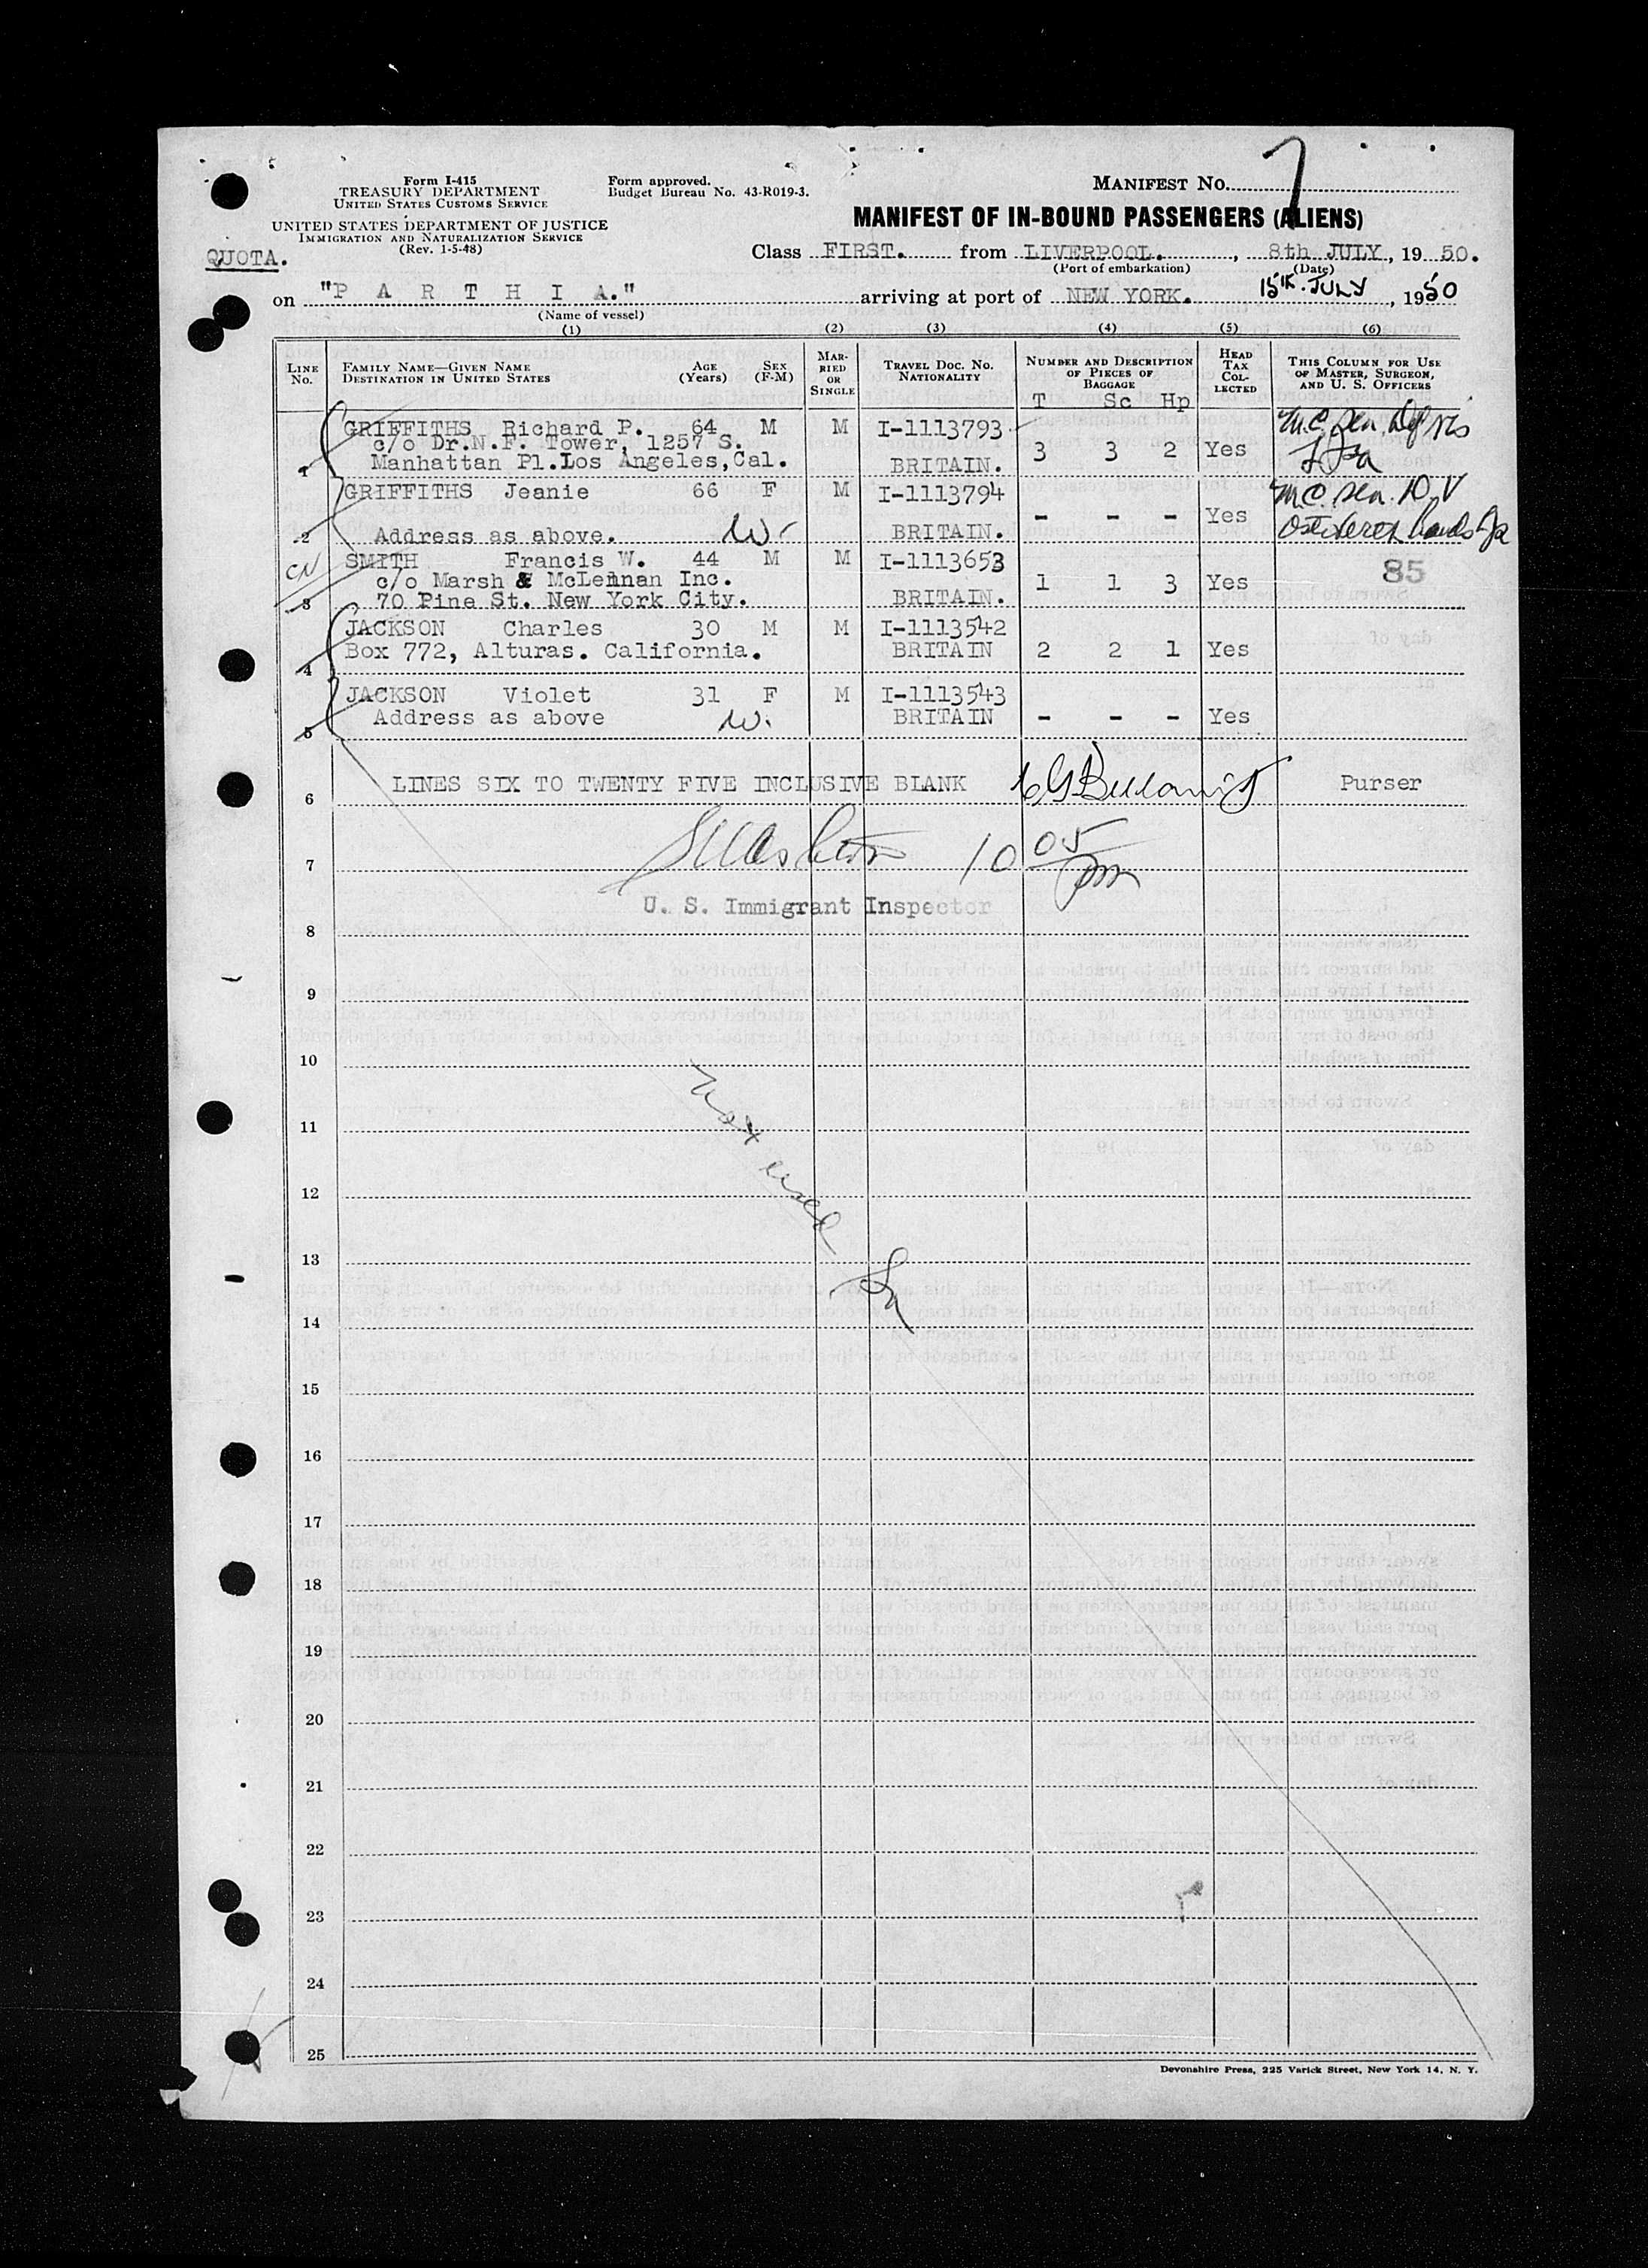 Form I-415
TREASURY DEPARTMENT
UNITED STATES CUSTOMS SERVICE
UNITED STATES DEPARTMENT OF JUSTICE
IMMIGRATION AND NATURALIZATION SERVICE
(Rev. 1-5-48)
Form approved.
Budget Bureau No. 43-R019-3.
MANIFEST No. 7
MANIFEST OF IN-BOUND PASSENGERS (ALIENS)
QUOTA.
Class FIRST. from LIVERPOOL. , 8th JULY, 19 50.
(Port of embarkation) (Date)
on "P A R T H I A." arriving at port of NEW YORK. 15th. JULY, 1950
(Name of vessel)
(1) (2) (3) (4) (5) (6)
LINE No. FAMILY NAME—GIVEN NAME DESTINATION IN UNITED STATES AGE (Years) SEX (F-M) MARRIED OR SINGLE TRAVEL DOC. No. NATIONALITY NUMBER AND DESCRIPTION OF PIECES OF BAGGAGE HEAD TAX COLLECTED THIS COLUMN FOR USE OF MASTER, SURGEON, AND U. S. OFFICERS
T Sc Hp
GRIFFITHS Richard P. 64 M M I-1113793
c/o Dr.N.F. Tower, 1257 S.
1 Manhattan Pl.Los Angeles,Cal. BRITAIN. 3 3 2 Yes
GRIFFITHS Jeanie 66 F M I-1113794
2 Address as above. W- BRITAIN. - - - Yes
CN SMITH Francis W. 44 M M I-1113653 85
c/o Marsh & McLennan Inc. 1 1 3 Yes
3 70 Pine St. New York City. BRITAIN.
JACKSON Charles 30 M M I-1113542
4 Box 772, Alturas. California. BRITAIN 2 2 1 Yes
JACKSON Violet 31 F M I-1113543
5 Address as above W. BRITAIN - - - Yes
6 LINES SIX TO TWENTY FIVE INCLUSIVE BLANK Purser
7 10 05 pm
U. S. Immigrant Inspector
8
9
10
Not used
11
12
13
14
15
16
17
18
19
20
21
22
23
24
25
Devonshire Press, 225 Varick Street, New York 14, N. Y.